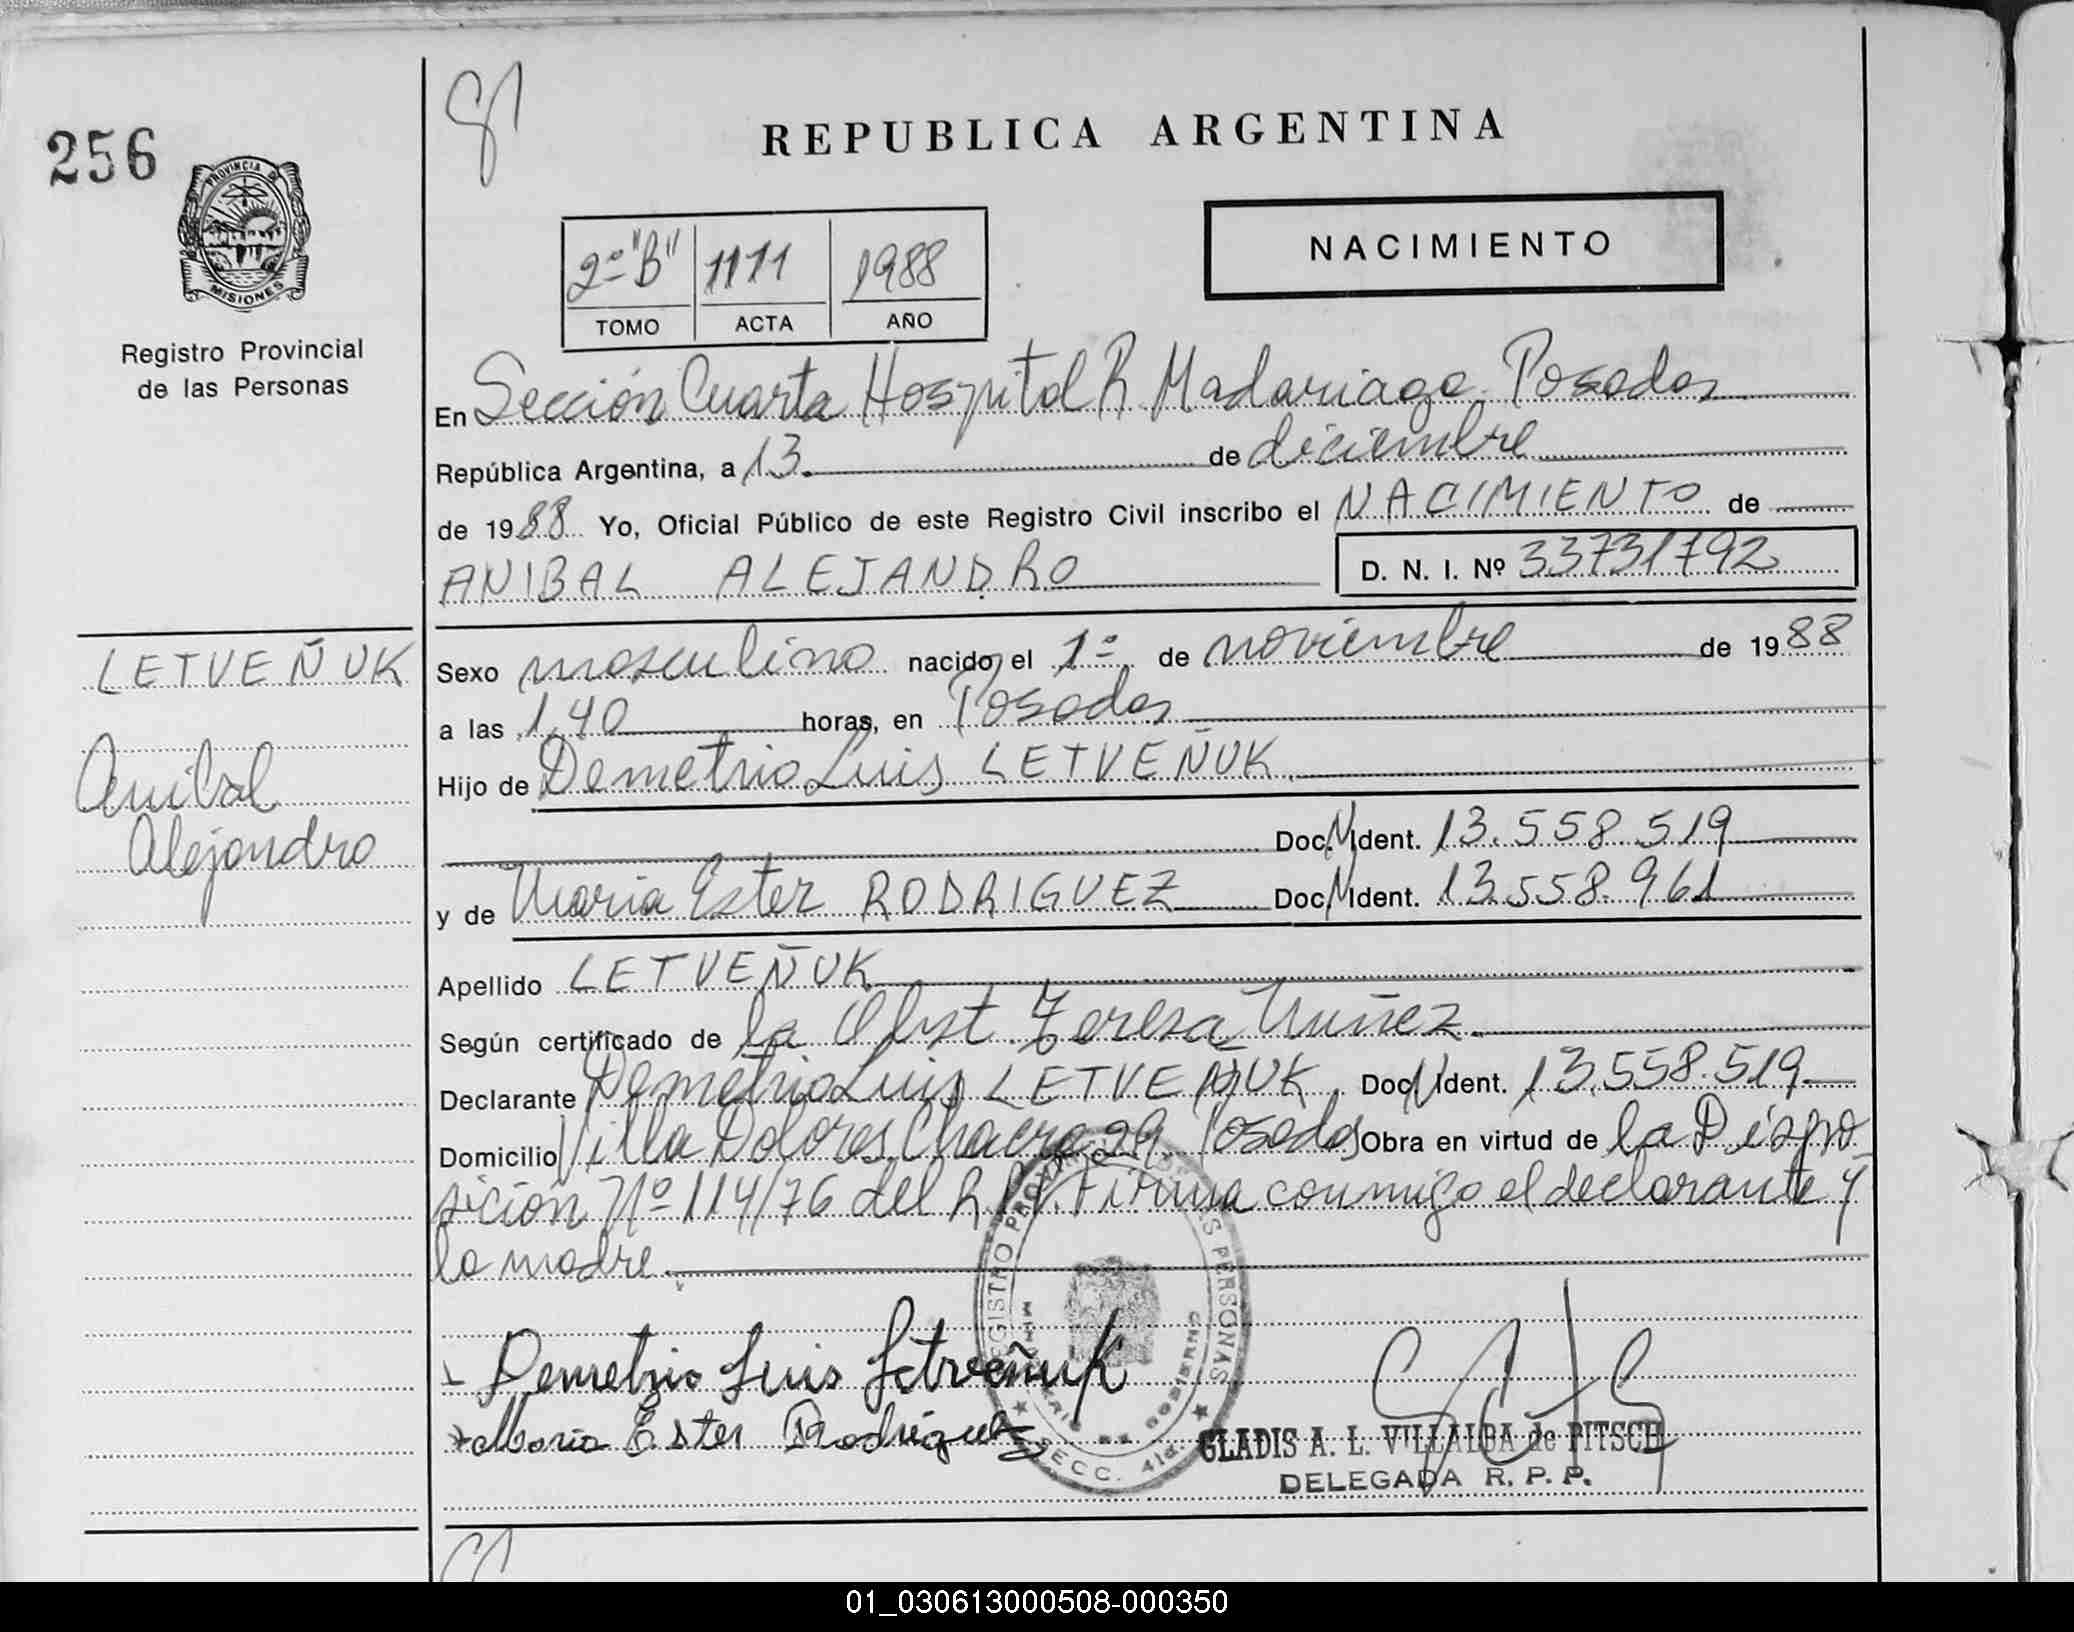 256
PROVINCIA DE
MISIONES
Registro Provincial
de las Personas
REPUBLICA ARGENTINA
NACIMIENTO
2º "B" 1111 1988
TOMO ACTA AÑO
En Sección Cuarta Hospital R Madariaga Posadas
República Argentina, a 13 de diciembre
de 1988 Yo, Oficial Público de este Registro Civil inscribo el NACIMIENTO de
ANIBAL ALEJANDRO D. N. I. Nº 33731792
Sexo masculino nacido el 1º de noviembre de 1988
a las 1,40 horas, en Posadas
Hijo de Demetrio Luis LETVEÑUK
Doc. N Ident. 13.558.519
y de Maria Ester RODRIGUEZ Doc. N Ident. 13.558.961
Apellido LETVEÑUK
Según certificado de la Obst. Teresa Nuñez
Declarante Demetrio Luis LETVEÑUK Doc. N Ident. 13.558.519
Domicilio Villa Dolores Chacra 29 Posadas Obra en virtud de la Dispo
sición Nº 114/76 del R.P.P. Firma conmigo el declarante y
la madre
LETVEÑUK
Anibal
Alejandro
Demetrio Luis Letveñuk
Maria Ester Rodriguez
REGISTRO PROVINCIAL DE LAS PERSONAS
MINISTERIO DE GOBIERNO
SECC. 4ta.
GLADIS A. L. VILLALBA de PITSCH
DELEGADA R. P. P.
01_030613000508-000350